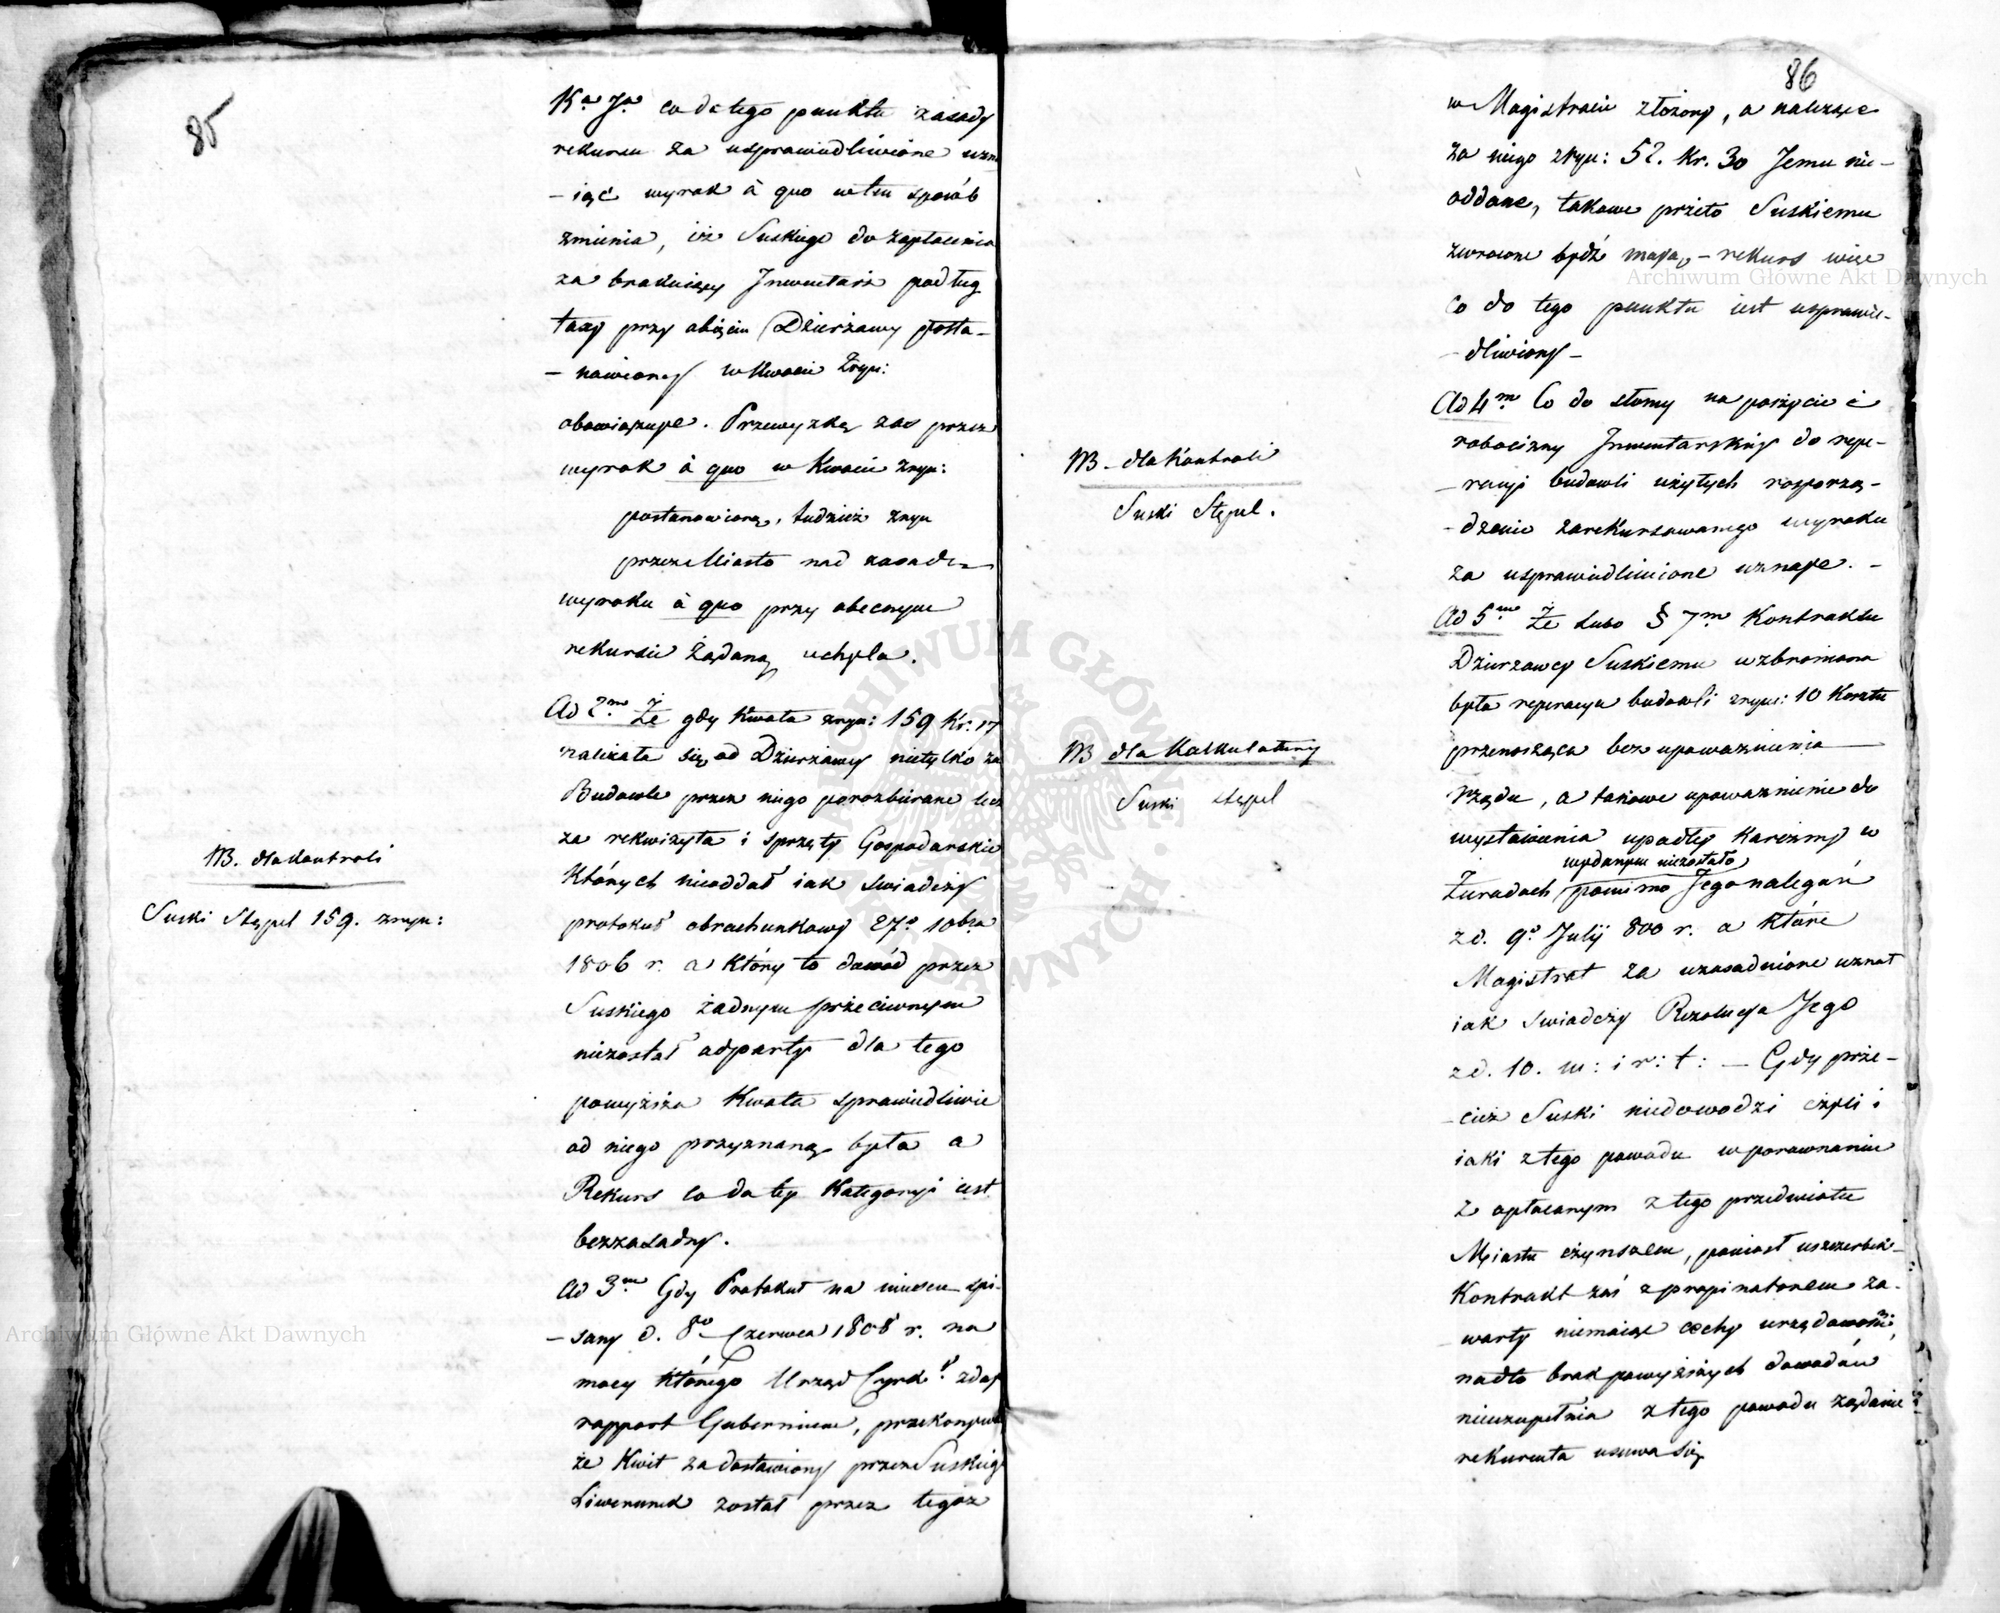 85
Ka Ja co do tego punktu zasady
rekursu za usprawiedliwione uzna
– iąć wyrok à quo w tem sposób
zmienia, iż Suskiego do zapłacenia
za brakuiący Inwentarz podług
taxy przy obięciu Dzierżawy posta–
– nowioney w Kwocie Zryn:
obowiązuje. Przewyżkę zas przez
wyrok à quo w Kwocie zryn:
postanowioną, tudzież zryn
przez Miasto nad zasadę
wyroku à quo przy obecnym
rekursie Żądaną uchyla.
Ad 2mo Że gdy Kwota zryn: 159 Kr. 17
należała się od Dzierżawcy nietylko za
Budowle przez niego porozbierane lecz
za rekwizyta i sprzęty Gospodarskie
Których nieoddał iak swiadczy
protokuł obrachunkowy 27o 10bra
1806 r. a Który to dowód przez
Suskiego żadnym przeciwnym
niezostał odparty dla tego
powyższa Kwota sprawiedliwie
od niego przyznaną była a
Rekurs co do tey Kategoryi iest
bezzasadny.
Ad 3m Gdy Protokuł na miescu spi–
– sany d. 8o Czerwca 1808 r. na
mocy Którego Urząd Cyrk: zdał
rapport Gubernium, przekonywa
że Kwit za dostawiony przez Suskieg
Liwerunek został przez tegoż
NB. dla Kontroli
Suski Stępel 159. zryn:
86
w Magistracie złożony, a należące
za niego zryn: 52. Kr. 30 Jemu nie–
oddane, takowe przeto Suskiemu
zwrócone bydź mają, – rekurs więc
co do tego punktu iest usprawie–
– dliwiony –
Ad 4m Co do słomy na poszycie i
robocizny Inwentarskiey do repe–
– racyi budowli użytych rosporzą–
– dzenie zarekursowanego wyroku
za usprawiedliwione uznaje. –
Ad 5me Że lubo § 7m Kontraktu
Dzierzawcy Suskiemu wzbroniona
była reperacya budowli zryn: 10 Kosztu
przenosząca bez upoważnienia
rządu, a takowe upoważnienie do
wystawienia upadłey Karczmy w
wydanym niezostało
Żuradach pomimo Jego nalegań
zd. 9o Julij 800 r. a Które
Magistrat za uzasadnione uznał
iak swiadczy Rezolucya Jego
zd. 10. m: i r: t: – Gdy prze–
– cież Suski niedowodzi czyli i
iaki z tego powodu w porownaniu
z opłacanym z tego przedmiotu
Miastu czynszem, poniosł uszczerbek–
Kontrakt zaś z propinatorem za–
– warty niemaiąc cechy urzędownéi,
nadto brak powyższych dowodów
nieuzupełnia z tego powodu żądanie
rekurenta usuwa się
NB – dla Kontroli
Suski Stępel.
NB dla Kalkulatury
Suski Stępel
Archiwum Główne Akt Dawnych
Archiwum Główne Akt Dawnych
ARCHIWUM GŁÓWNE AKT DAWNYCH